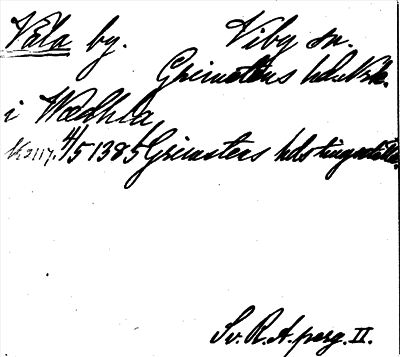 Väla by. Viby sn.
Grimstens hd. Nke.
i Wædhla,
K3117. 4/5 1385 Grimstens hds tingställe.
Sv. R. A. perg. II.